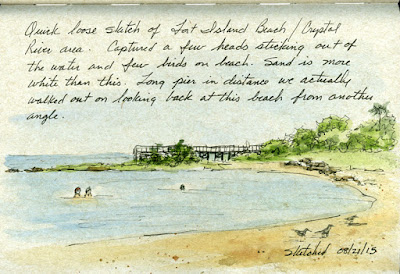 Quick loose sketch of Fort Island Beach / Crystal
River area. Captured a few heads sticking out of
the water and few birds on beach. Sand is more
white than this. Long pier in distance we actually
walked out on looking back at this beach from another
angle.
Sketched 08/21/13